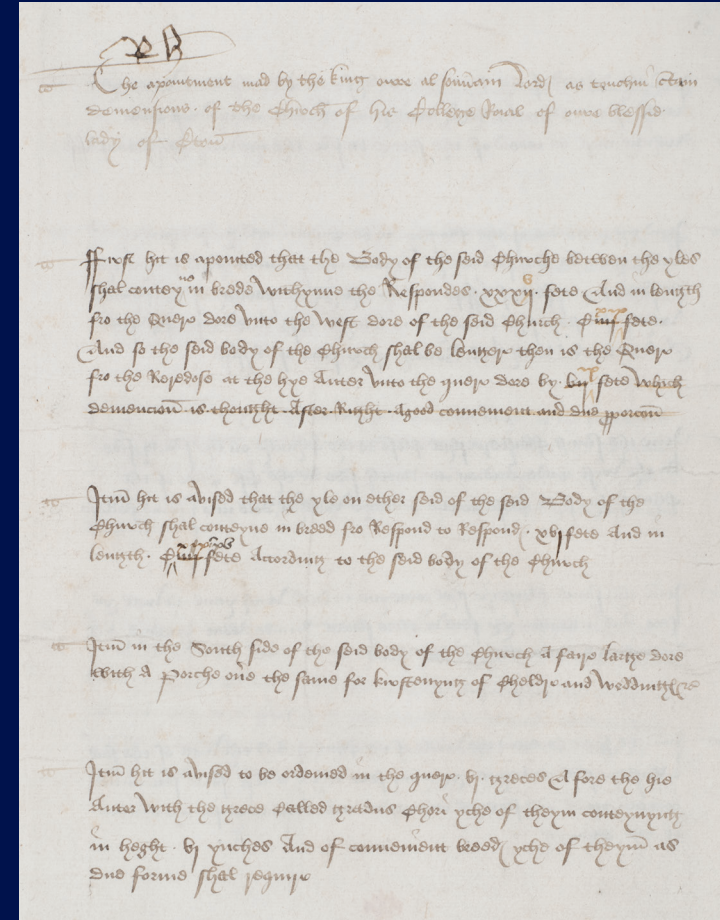 R H
The apointment mad by the king owre al souuain Lord as touchin cteyn
demensions of the Chirch of his College Roial of oure blessed
lady of Eton
Ffirst hit is apointed that the Body of the seid Chirche betwen the yles
shal conteyn in brede Withynne the Respondes xxxij fete And in length
fro the Quere dore Vnto the West dore of the seid Church fete
And so the seid body of the Chirch shal be lenger then is the Quere
fro the Reredose at the hye Auter Vnto the quere dore by fete Which
demencion is thought After Right Agood conuenient and due pporcon
Itm hit is avised that the yle on ether seid of the seid Body of the
Chirch shal conteyne in breed fro Respond to Respond xvj fete And in
length fete According to the seid body of the Chirch
Itm in the South side of the seid body of the Chirch A faire large dore
With A Porche oue the same for kirstenyng of Cheldre and Weddinges
Itm hit is avised to be ordeined in the quere vj greces A fore the hie
Auter With the grece Called gradus Chori yche of theym conteynyng
in heght vj ynches And of conuenient breed yche of theym as
due forme shal require